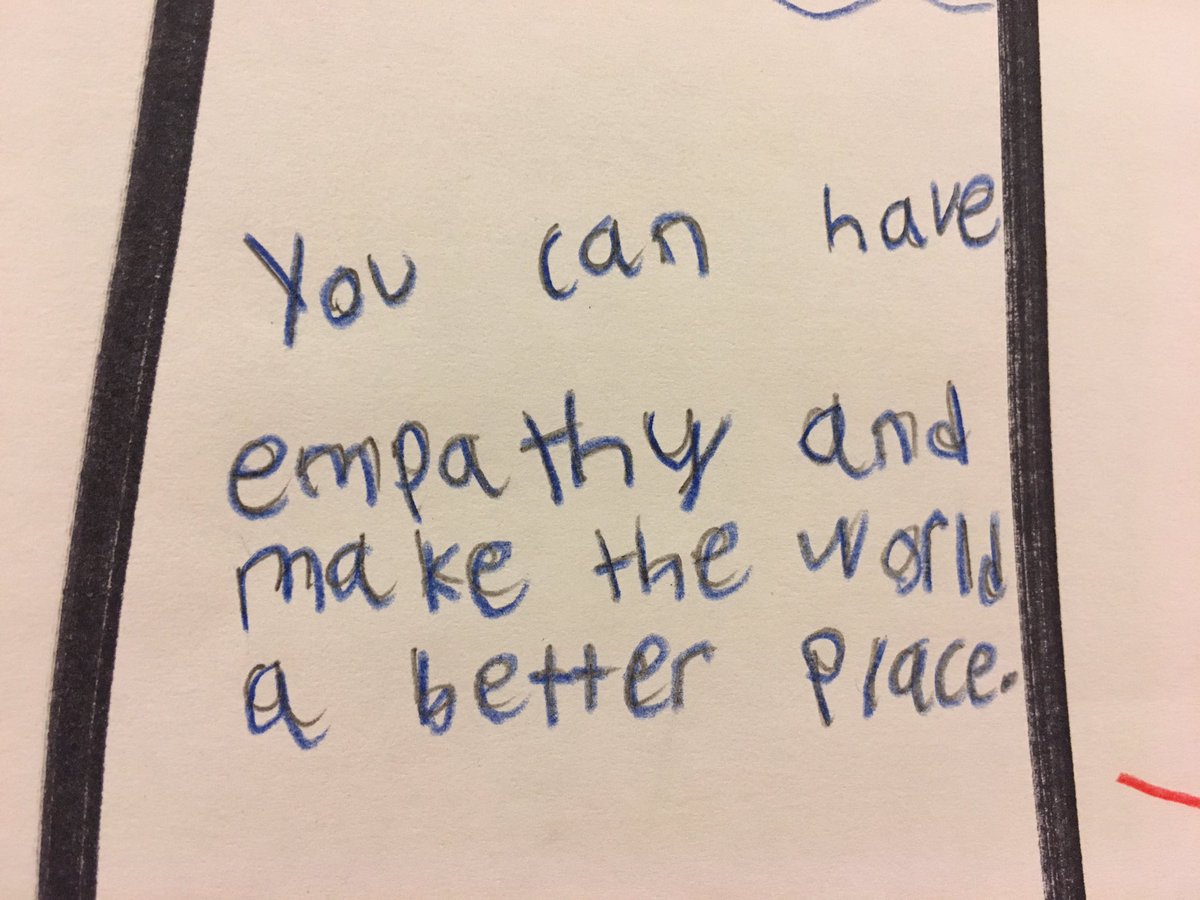 You can have
empathy and
make the world
a better place.